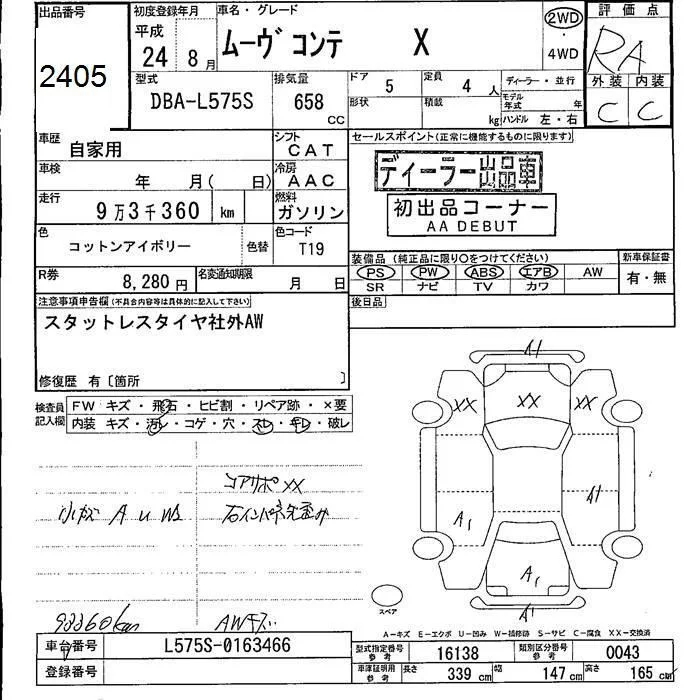 出品番号 初度登録年月 車名・グレード 2WD 評価点
平成 ムーヴ コンテ X ・ RA
24 8月 4WD
2405 型式 排気量 ドア 5 定員 4人 ディーラー・並行 外装 内装
DBA-L575S 658 CC 形状 積載 kg モデル年式 年 C C
ハンドル 左・右
車歴 自家用 シフト CAT セールスポイント(正常に機能するものに限ります)
車検 年 月( 日) 冷房 AAC ディーラー出品車
走行 9万3千360 km 燃料 ガソリン 初出品コーナー
AA DEBUT
色 コットンアイボリー 色替 色コード T19
装備品 (純正品に限り○をつけてください) 新車保証書
R券 8,280円 名変通知期限 月 日 PS PW ABS エアB AW 有・無
SR ナビ TV カワ
注意事項申告欄(不具合内容等は具体的に記入して下さい) 後日品
スタットレスタイヤ社外AW
修復歴 有〔箇所 〕
検査員記入欄 FW キズ・飛石・ヒビ割・リペア跡・×要
内装 キズ・汚レ・コゲ・穴・スレ・キレ・破レ
A1
XX XX XX
コアサポXX
小キズ A U W
A1 A1
A1
スペア A1
93360km AWキズ
A-キズ E-エクボ U-凹み W-補修跡 S-サビ C-腐食 XX-交換済
車台番号 L575S-0163466 型式指定番号 参考 16138 類別区分番号 参考 0043
登録番号 車庫証明用 参考 長さ 339cm 幅 147cm 高さ 165cm